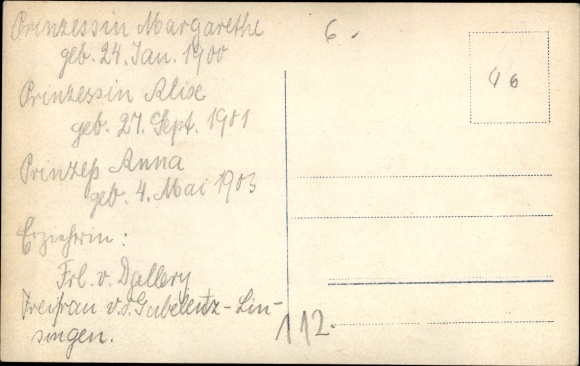 Prinzessin Margarethe
geb. 24. Jan. 1900
Prinzessin Alise
geb. 27. Sept. 1901
Prinzeß Anna
geb. 4. Mai 1903
Erzieherin:
Frl. v. Dallery
Freifrau v. d. Gabelentz-Lin-
singen.
6.
46
112.